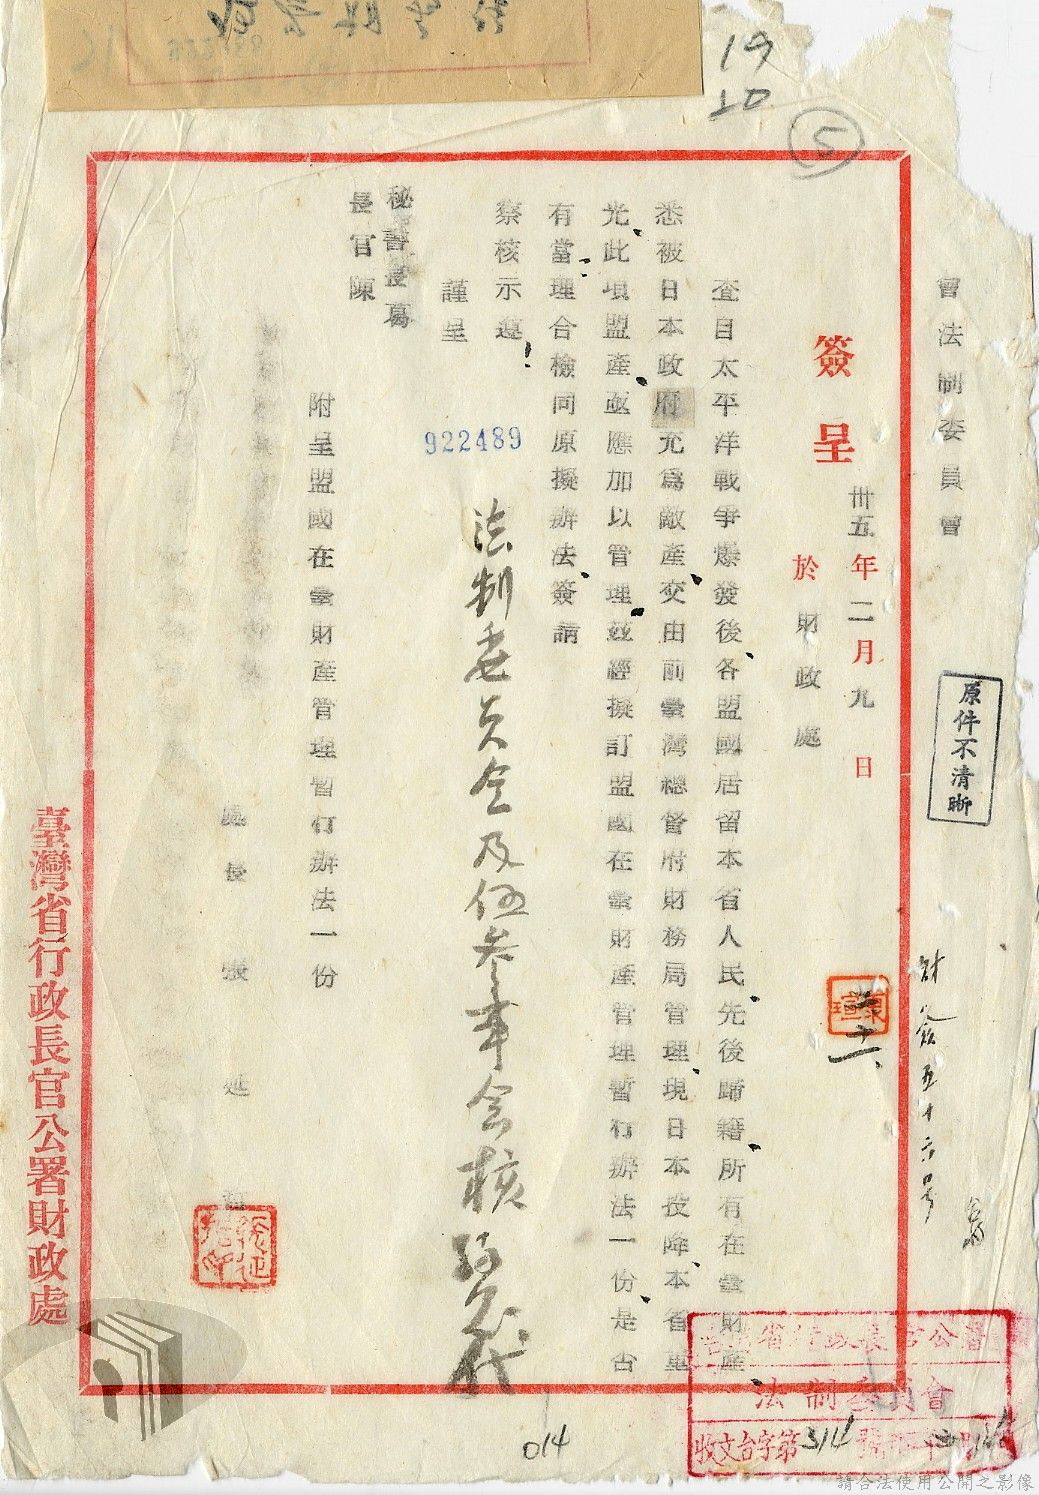 19
20
5
會法制委員會
簽呈
卅五年二月九日
於財政處
查自太平洋戰爭爆發後各盟國居留本省人民、先後歸籍、所有在臺財產
悉被日本政府充爲敵產、交由前臺灣總督府財務局管理、現日本投降、本省重
光、此項盟產、亟應加以管理、茲經擬訂盟國在臺財產管理暫行辦法一份、是否
有當、理合檢同原擬辦法、簽請
察核示遵!
謹呈
秘書長葛
長官陳
922489
法制委員會及伍參事會核
代
附呈盟國在臺財產管理暫行辦法一份
處長張延
臺灣省行政長官公署財政處
原件不清晰
財簽五十六号
省行政長官公署
法制委員會
收文台字第314號
014
請合法使用公開之影像